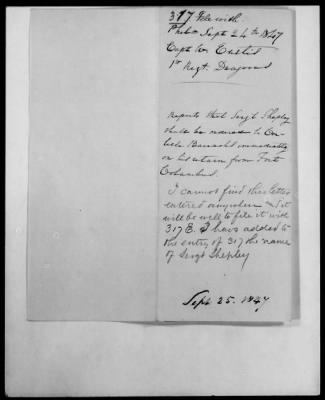 317 File with
Phila Sept 24th 1847
Capt
1st Regt. Dragoons
Reports that Sergt Shepley
shall be named to Car-
lisle Barracks immediately
on his return from Fort
Columbus.
I cannot find this letter
entered anywhere it
will be well to file it with
317 E. I have added to
the entry of 317 the name
of Sergt Shepley
Sept 25. 1847